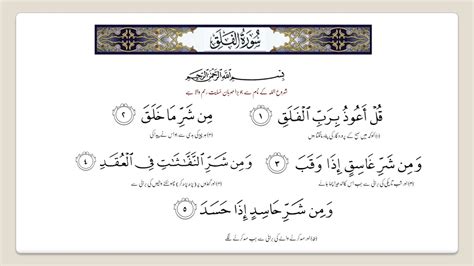 سُورَةُ الْفَلَقِ
بِسْمِ اللَّهِ الرَّحْمَٰنِ الرَّحِيمِ
شروع اللہ کے نام سے جو بڑا مہربان نہایت رحم والا ہے
قُلْ أَعُوذُ بِرَبِّ الْفَلَقِ ١ مِن شَرِّ مَا خَلَقَ ٢
کہو کہ میں صبح کے پروردگار کی پناہ مانگتا ہوں ہر چیز کی بدی سے جو اس نے پیدا کی
وَمِن شَرِّ غَاسِقٍ إِذَا وَقَبَ ٣ وَمِن شَرِّ النَّفَّاثَاتِ فِي الْعُقَدِ ٤
اور شب تاریکی کی برائی سے جب اس کا اندھیرا چھا جائے اور گنڈوں پر پڑھ پڑھ کر پھونکنے والیوں کی برائی سے
وَمِن شَرِّ حَاسِدٍ إِذَا حَسَدَ ٥
اور حسد کرنے والے کی برائی سے جب حسد کرنے لگے